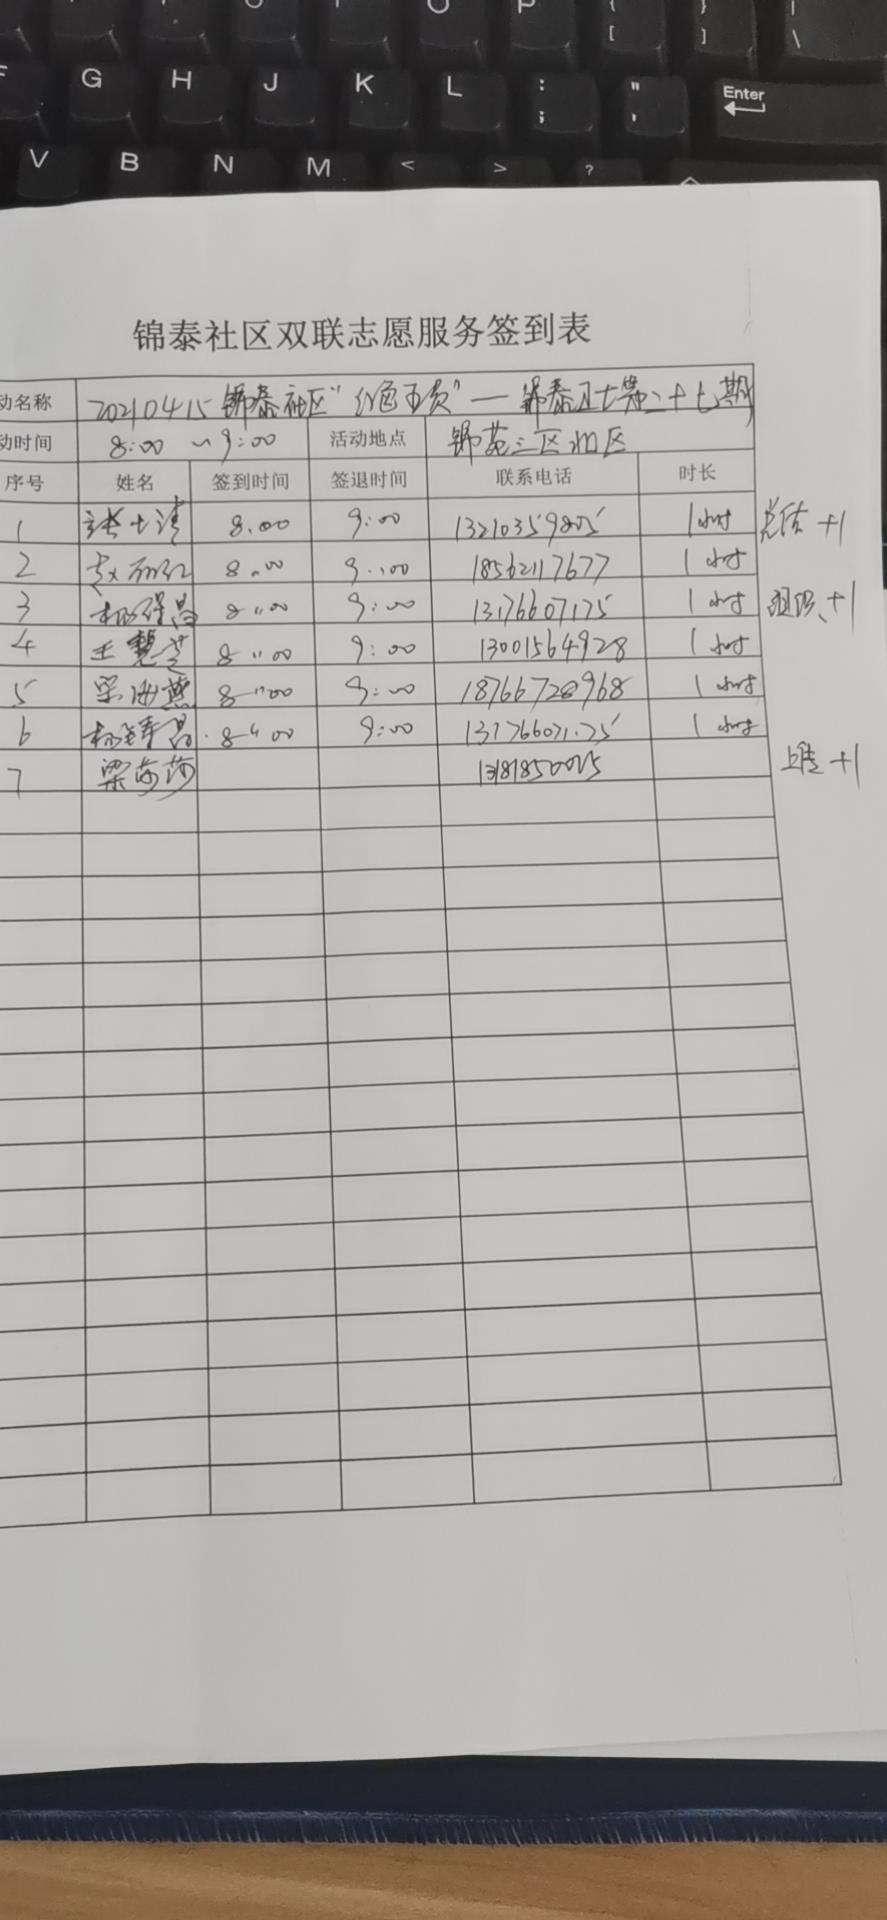 O P { }
[ ] \
F G H J K L : " Enter
; '
V B N M < > ?
锦泰社区双联志愿服务签到表
动名称 20210415锦泰社区"红色 "一锦泰卫士第二十七期
动时间 8:00~9:00 活动地点 锦苑三区北区
序号 姓名 签到时间 签退时间 联系电话 时长
1 8:00 9:00 13210359805 1小时 总结+1
2 8:00 9:00 18562117677 1小时
3 8:00 9:00 13176607175 1小时 组织+1
4 王慧芝 8:00 9:00 13001564928 1小时
5 梁海燕 8:00 9:00 18766728968 1小时
6 8:00 9:00 13176607175 1小时
7 梁莎莎 上传+1